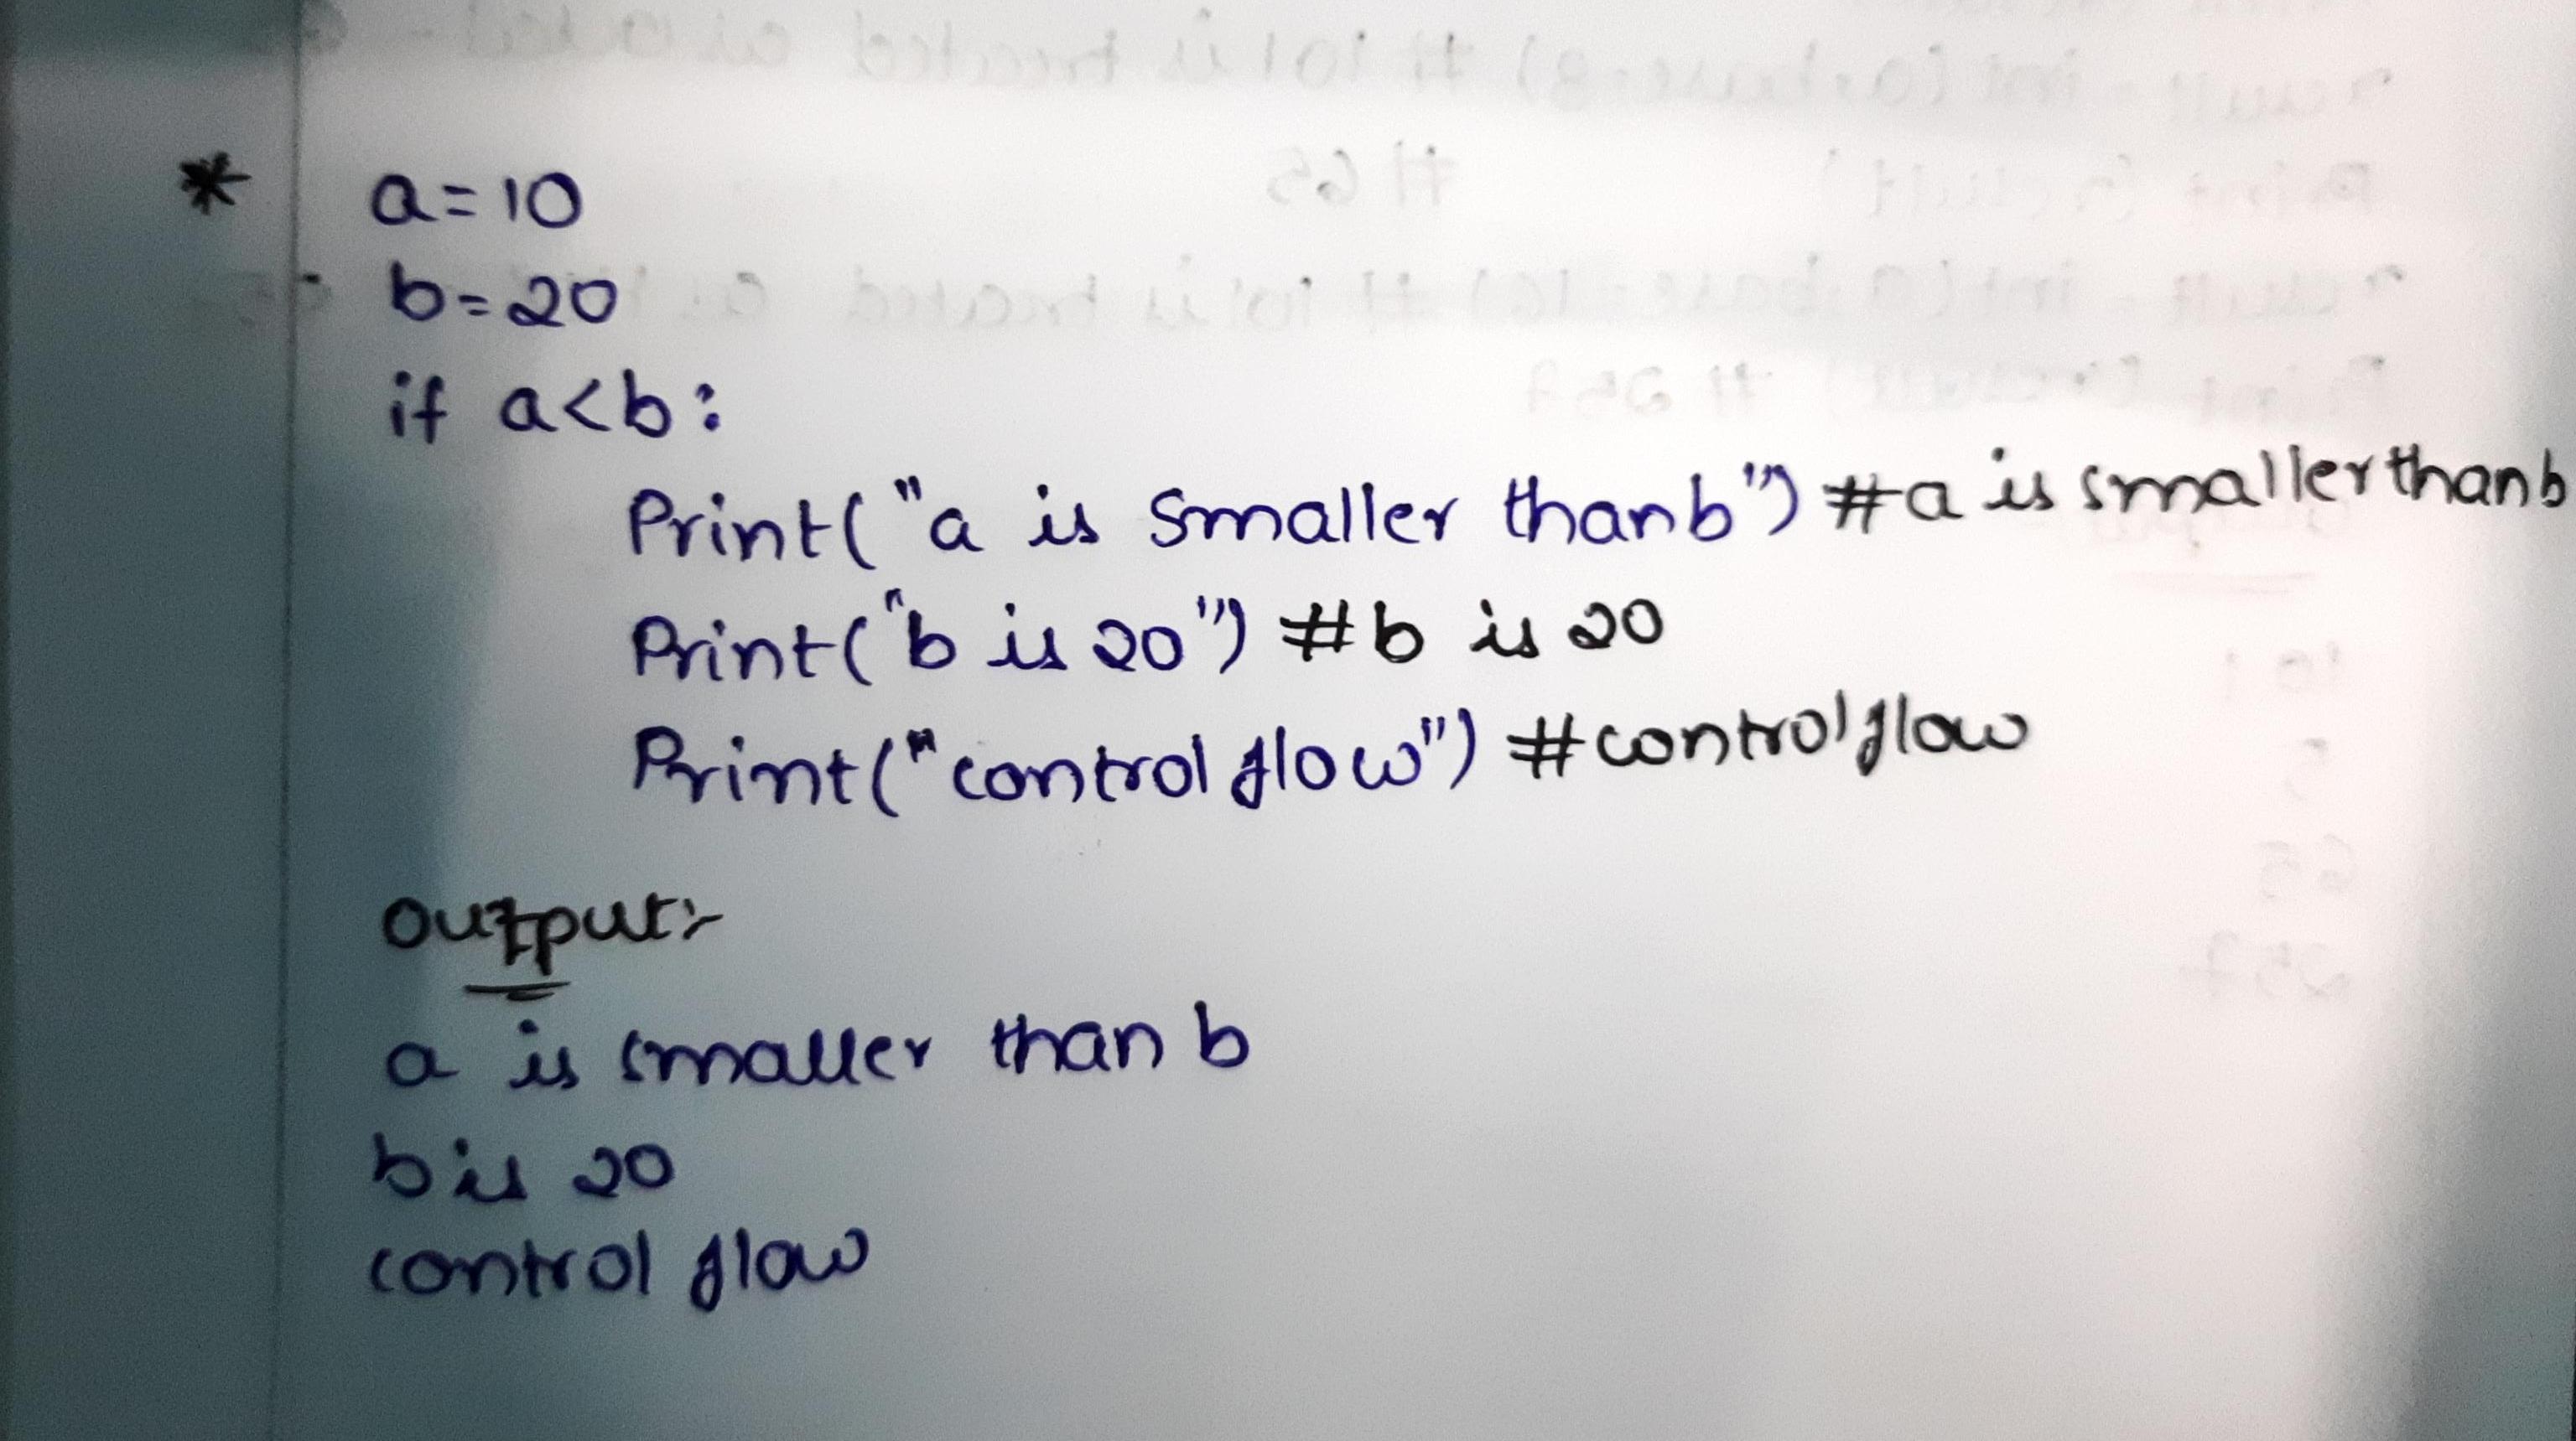 * a=10
b=20
if a<b:
Print("a is smaller than b") #a is smaller than b
Print("b is 20") #b is 20
Print("control flow") #control flow
output:-
a is smaller than b
b is 20
control flow